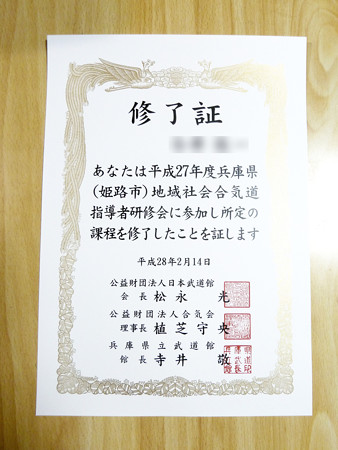 修了証
あなたは平成27年度兵庫県
(姫路市)地域社会合気道
指導者研修会に参加し所定の
課程を修了したことを証します
平成28年2月14日
公益財団法人日本武道館
会長 松永 光
公益財団法人合気会
理事長 植芝守央
兵庫県立武道館
館長 寺井 敬